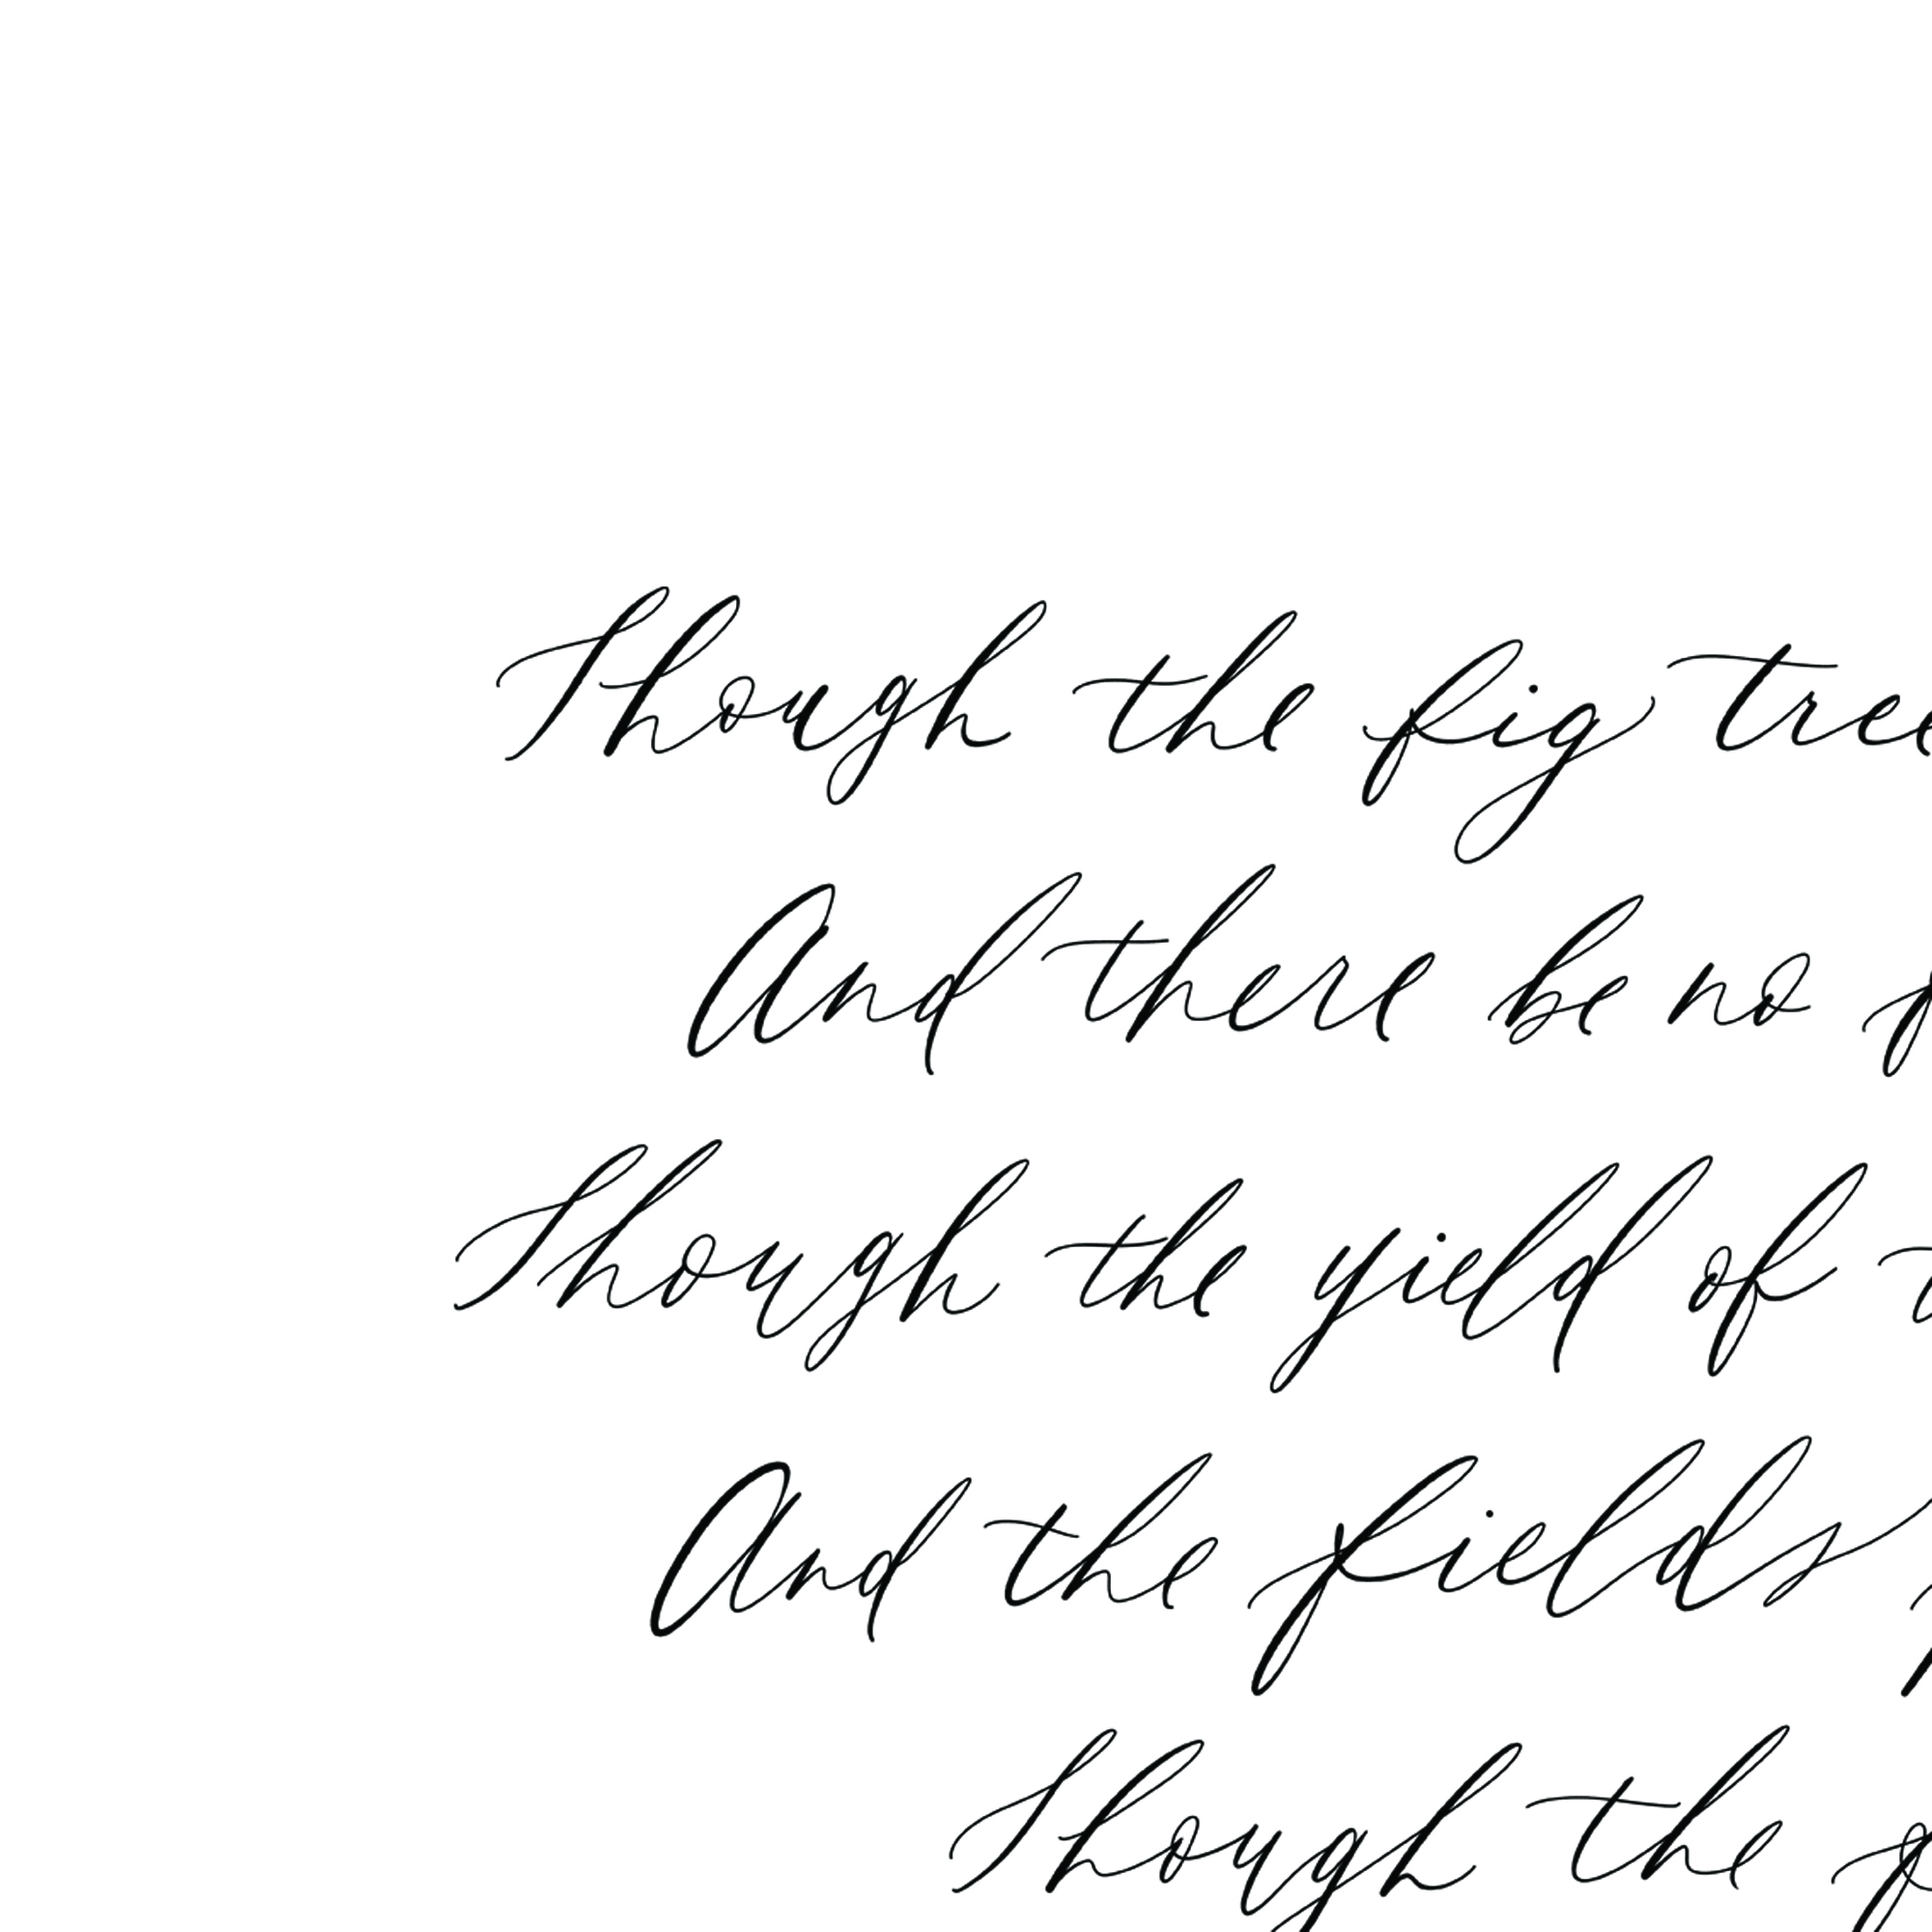 Though the fig tree
And there be no
Though the yield of
And the fields
Though the